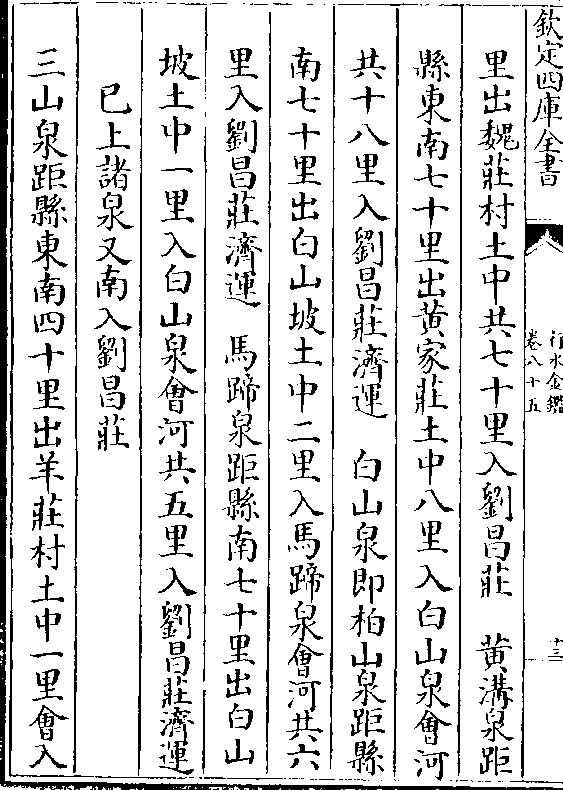 欽定四庫全書
行水金鑑
卷八十五
十三
里出魏莊村土中共七十里入劉昌莊　黄溝泉距
縣東南七十里出黄家莊土中八里入白山泉會河
共十八里入劉昌莊濟運　白山泉即柏山泉距縣
南七十里出白山坡土中二里入馬蹄泉會河共六
里入劉昌莊濟運　馬蹄泉距縣南七十里出白山
坡土中一里入白山泉會河共五里入劉昌莊濟運
已上諸泉又南入劉昌莊
三山泉距縣東南四十里出羊莊村土中一里會入